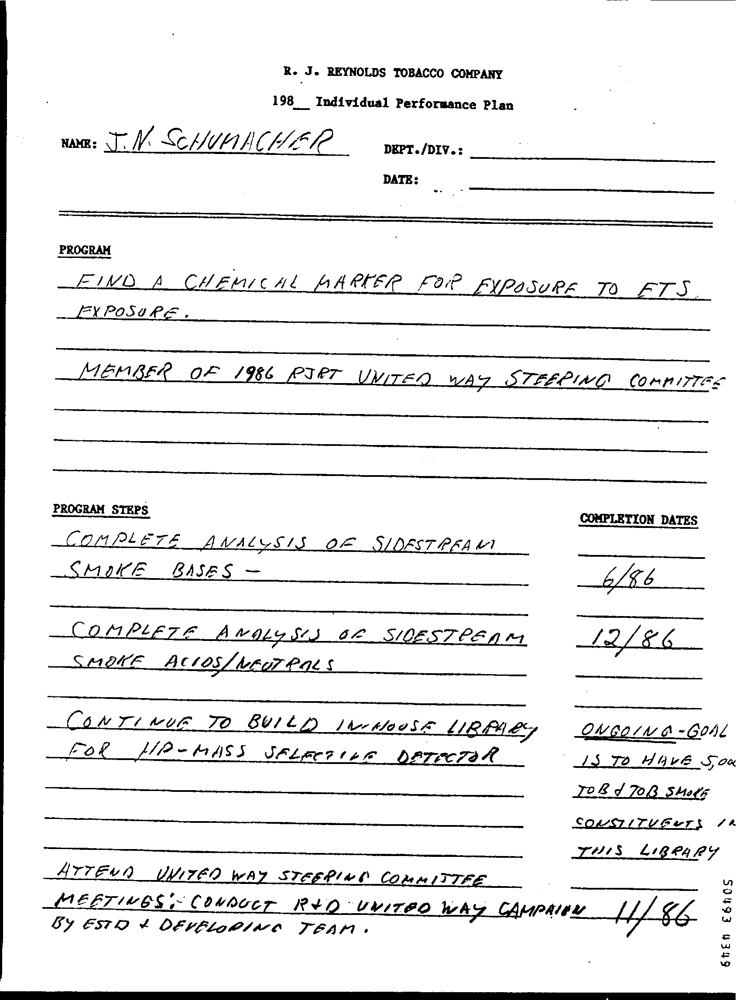 R. J. REYNOLDS TOBACCO COMPANY
198__ Individual Performance Plan
NAME: J. N. SCHUMACHER
DEPT./DIV.:
DATE:
PROGRAM
FIND A CHEMICAL MARKER FOR EXPOSURE TO ETS
EXPOSURE.
MEMBER OF 1986 RJRT UNITED WAY STEERING COMMITTEE
PROGRAM STEPS
COMPLETION DATES
COMPLETE ANALYSIS OF SIDESTREAM
SMOKE BASES - 6/86
COMPLETE ANALYSIS OF SIDESTREAM 12/86
SMOKE ACIDS/NEUTRALS
CONTINUE TO BUILD IN-HOUSE LIBRARY ONGOING-GOAL
FOR HP-MASS SELECTIVE DETECTOR IS TO HAVE 5,00
TOB & TOB SMOKE
CONSTITUENTS IN
THIS LIBRARY
ATTEND UNITED WAY STEERING COMMITTEE
MEETINGS; CONDUCT R+D UNITED WAY CAMPAIGN 11/86
BY ESTD + DEVELOPING TEAM.
50493 4349